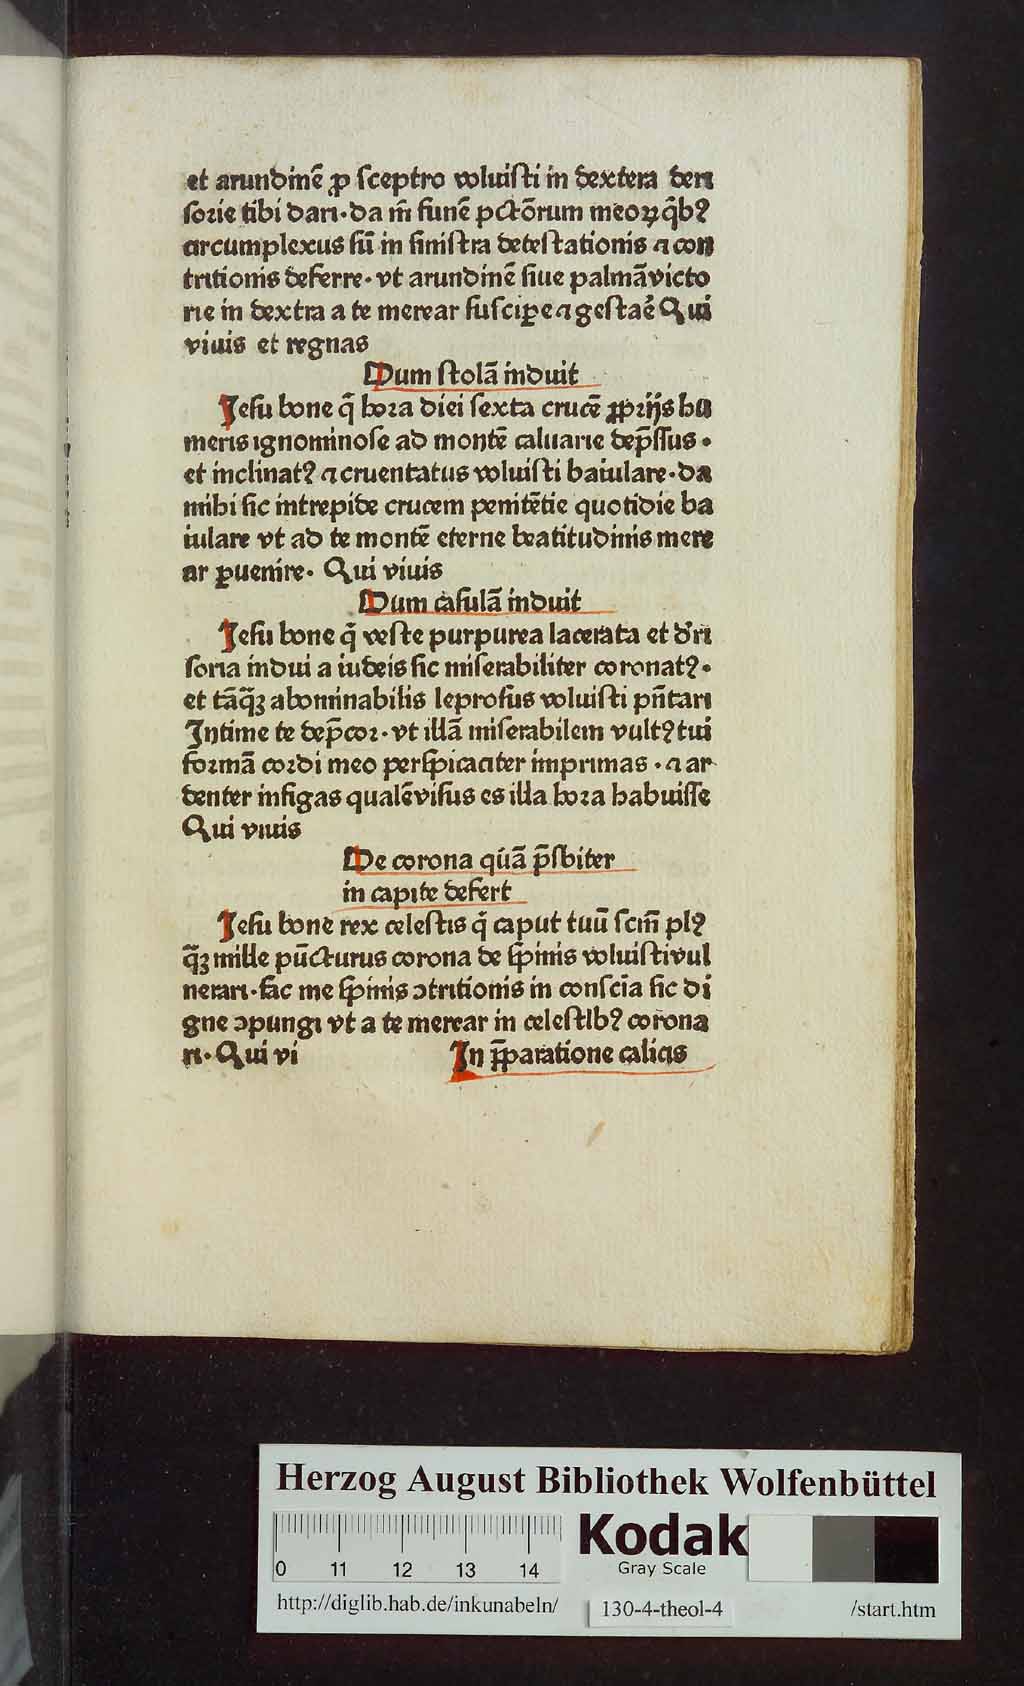 et arundinē ꝓ sceptro voluisti in dextera deri
sorie tibi dari · da m̄ funē pctōrum meoꝝ q̄bꝰ
circumplexus sū in sinistra detestationis ⁊ con
tritionis deferre · vt arundinē siue palmā victo
rie in dextra a te merear suscipe ⁊ gestaē Qui
viuis et regnas
Dum stolā induit
Jesu bone q̄ hora diei sexta crucē ꝓprijs hu
meris ignominose ad montē caluarie dep̄ssus ·
et inclinatꝰ ⁊ cruentatus voluisti baiulare · da
mihi sic intrepide crucem penitētie quotidie ba
iulare vt ad te montē eterne beatitudinis mere
ar ꝑuenire · Qui viuis
Dum casulā induit
Jesu bone q̄ veste purpurea lacerata et d'ri
soria indui a iudeis sic miserabiliter coronatꝰ ·
et tāq̄ꝫ abominabilis leprosus voluisti pn̄tari
Intime te dep̄cor · vt illā miserabilem vultꝰ tui
formā cordi meo perspicaciter imprimas · ⁊ ar
denter infigas qualē visus es illa hora habuisse
Qui viuis
De corona quā p̄sbiter
in capite defert
Jesu bone rex celestis q̄ caput tuū scm̄ plꝰ
q̄ꝫ mille pūcturus corona de spinis voluisti vul
nerari · fac me spinis ↄtritionis in conscīa sic di
gne ↄpungi vt a te merear in celestibꝰ corona
ri · Qui vi In p̄paratione calicis
Herzog August Bibliothek Wolfenbüttel
0 11 12 13 14
Kodak
Gray Scale
http://diglib.hab.de/inkunabeln/ 130-4-theol-4 /start.htm